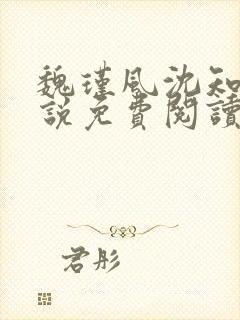 魏瑾風沈知
說免費閱讀
君彤